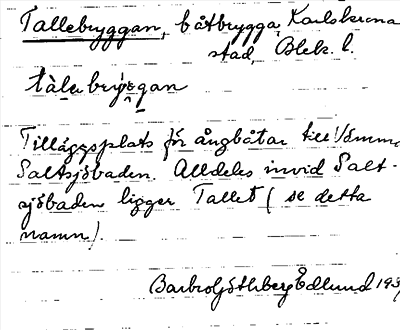 Tallebryggan, båtbrygga, Karlskrona
stad, Blek. l.
tàlebryggan
Tilläggsplats för ångbåtar till Vämmö
Saltsjöbaden. Alldeles invid Salt-
sjöbaden ligger Tallet (se detta
namn).
Barbro Göthberg Edlund 193